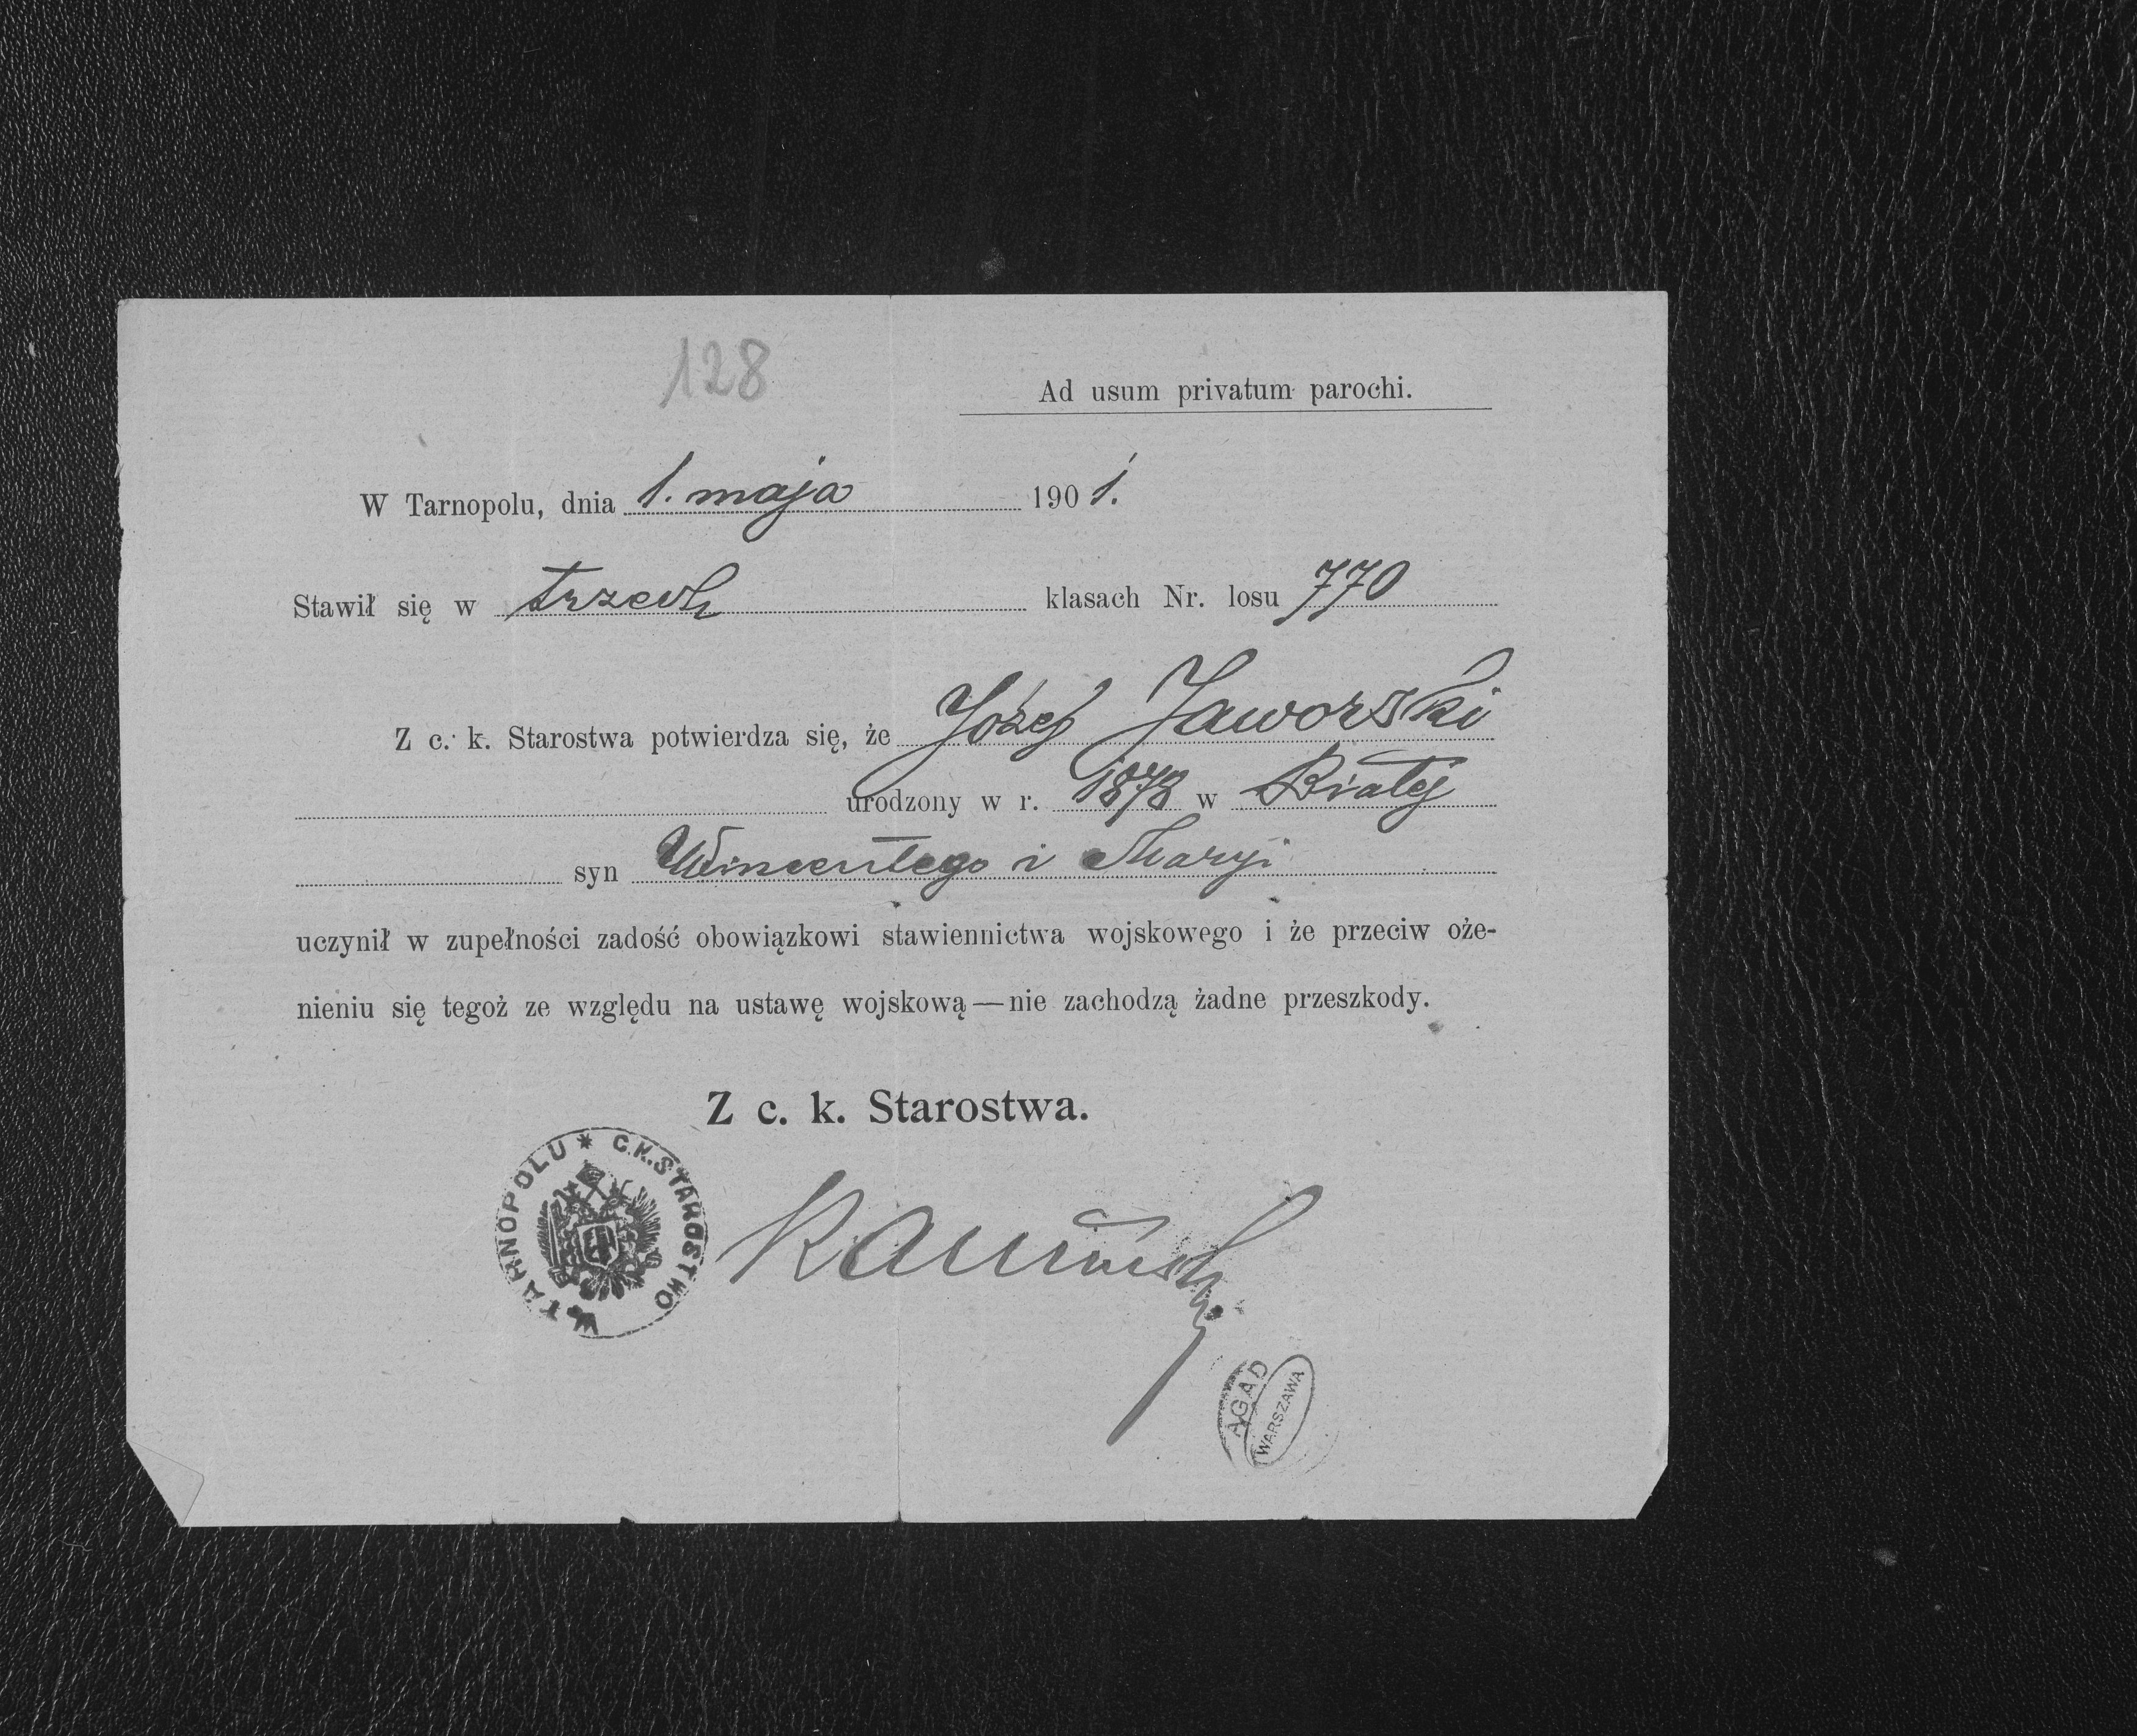 128
Ad usum privatum parochi.
W Tarnopolu, dnia 1. maja 1901.
Stawił się w trzech klasach Nr. losu 770
Z c. k. Starostwa potwierdza się, że Józef Jaworski
urodzony w r. 1878 w Białej
syn Wincentego i Maryi
uczynił w zupełności zadość obowiązkowi stawiennictwa wojskowego i że przeciw oże-
nieniu się tegoż ze względu na ustawę wojskową — nie zachodzą żadne przeszkody.
Z c. k. Starostwa.
C.K. STAROSTWO W TARNOPOLU *
AGAD
WARSZAWA